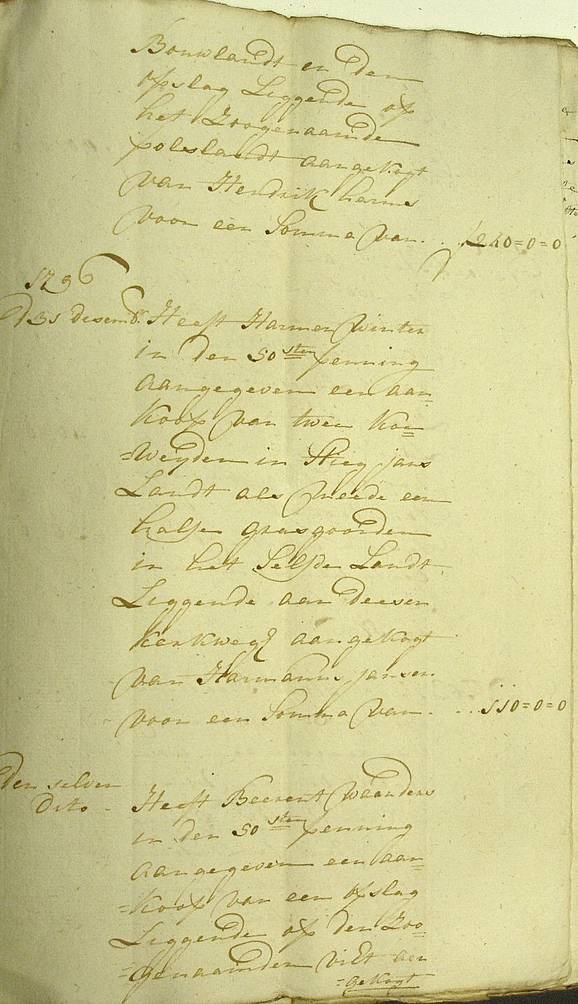 Bouwlandt en den
opslag Liggende op
het Zoogenaamde
polslandt aangekogt
van Hendrik harms
voor een Somma van . . f240=0=0
1796
d 31 desemb. Heeft Harmen Winter
in den 50sten penning
aangegeven een aan
koop van twee Koe=
=Weijden in Stieg jans
Landt als meede een
halfe grasgoorden
in het Selfde Landt
Liggende aan deesen
kerkweg aangekogt
van Harmannus jansen
voor een Somma van . . . 110=0=0
den selven
dito - Heeft Beerent Waanders
in den 50sten penning
aangegeven een aan=
=koop van een opslag
Liggende op den Zoo=
=genaamden aan
=gekogt